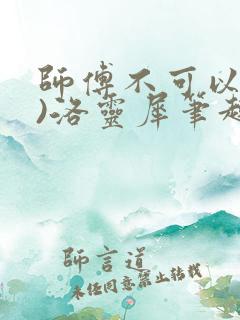 師傅不可以
)洛靈犀筆趣
師言道
未经同意禁止转载